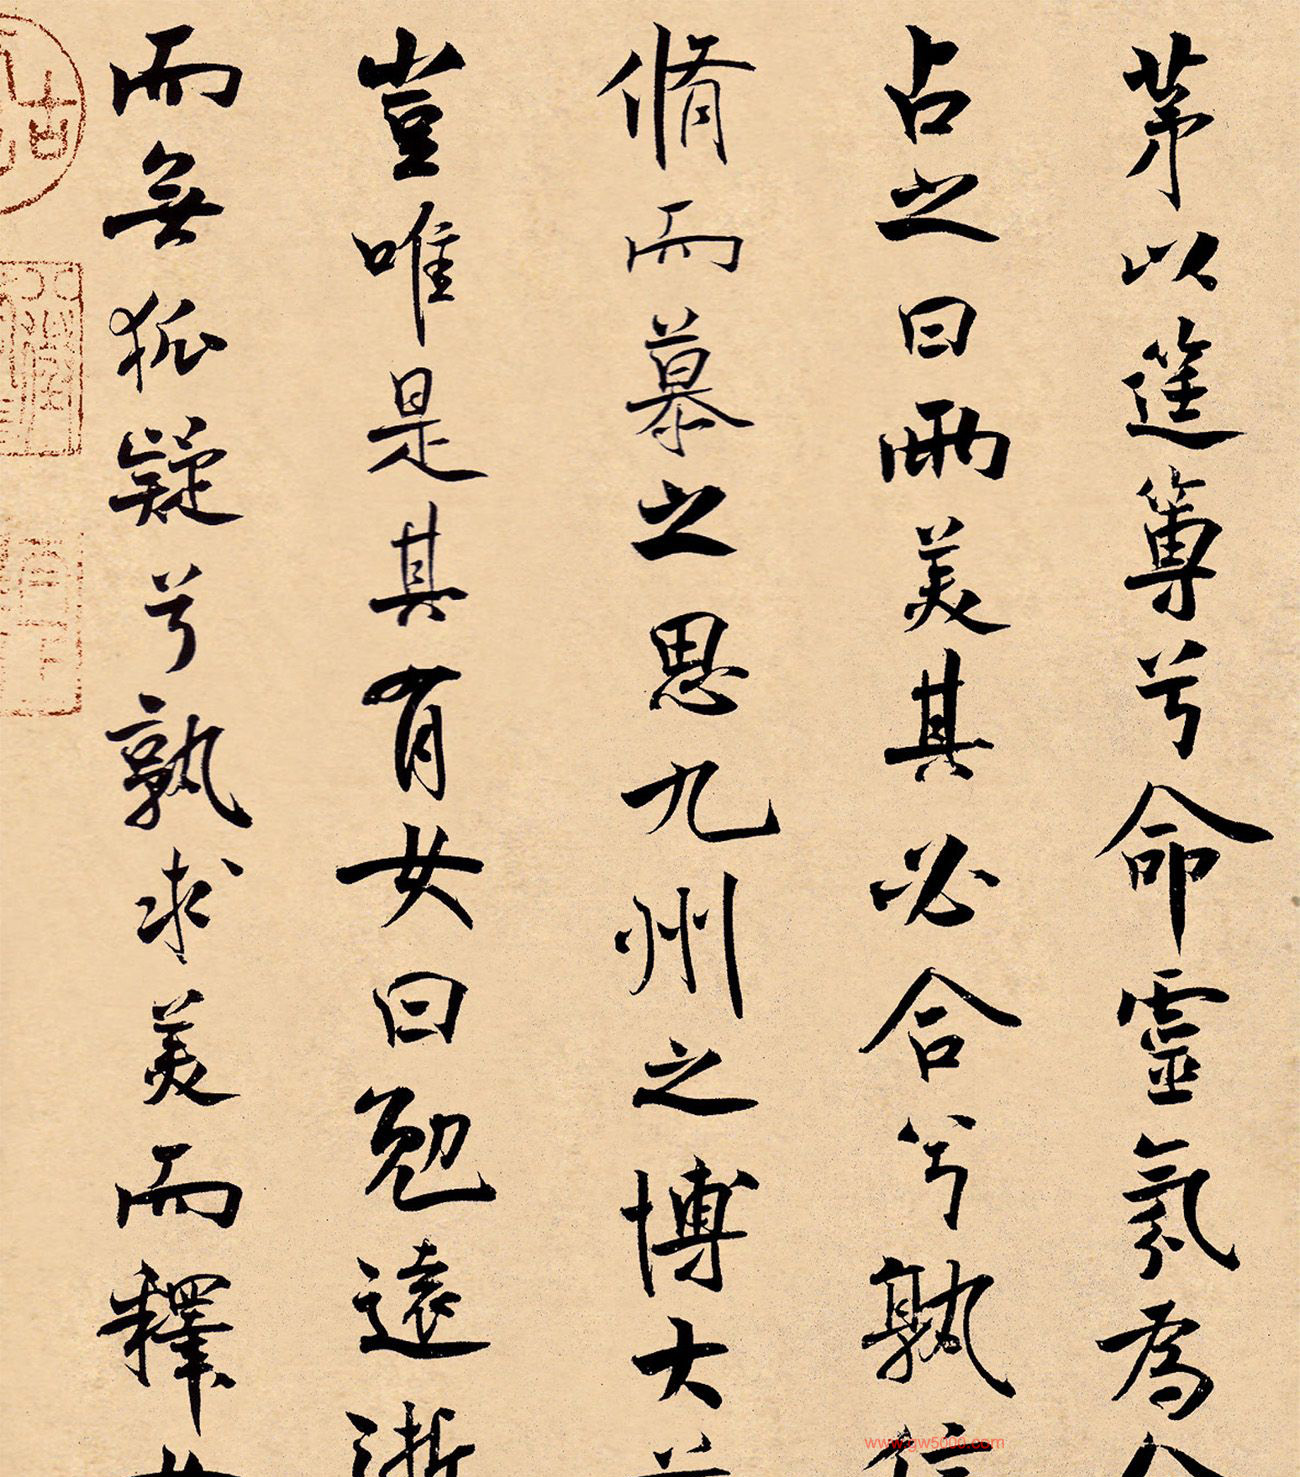 茅以筳篿兮命靈氛為
占之曰兩美其必合兮孰信
脩而慕之思九州之博大
豈唯是其有女曰勉遠逝
而無狐疑兮孰求美而釋女
www.gw5000.com